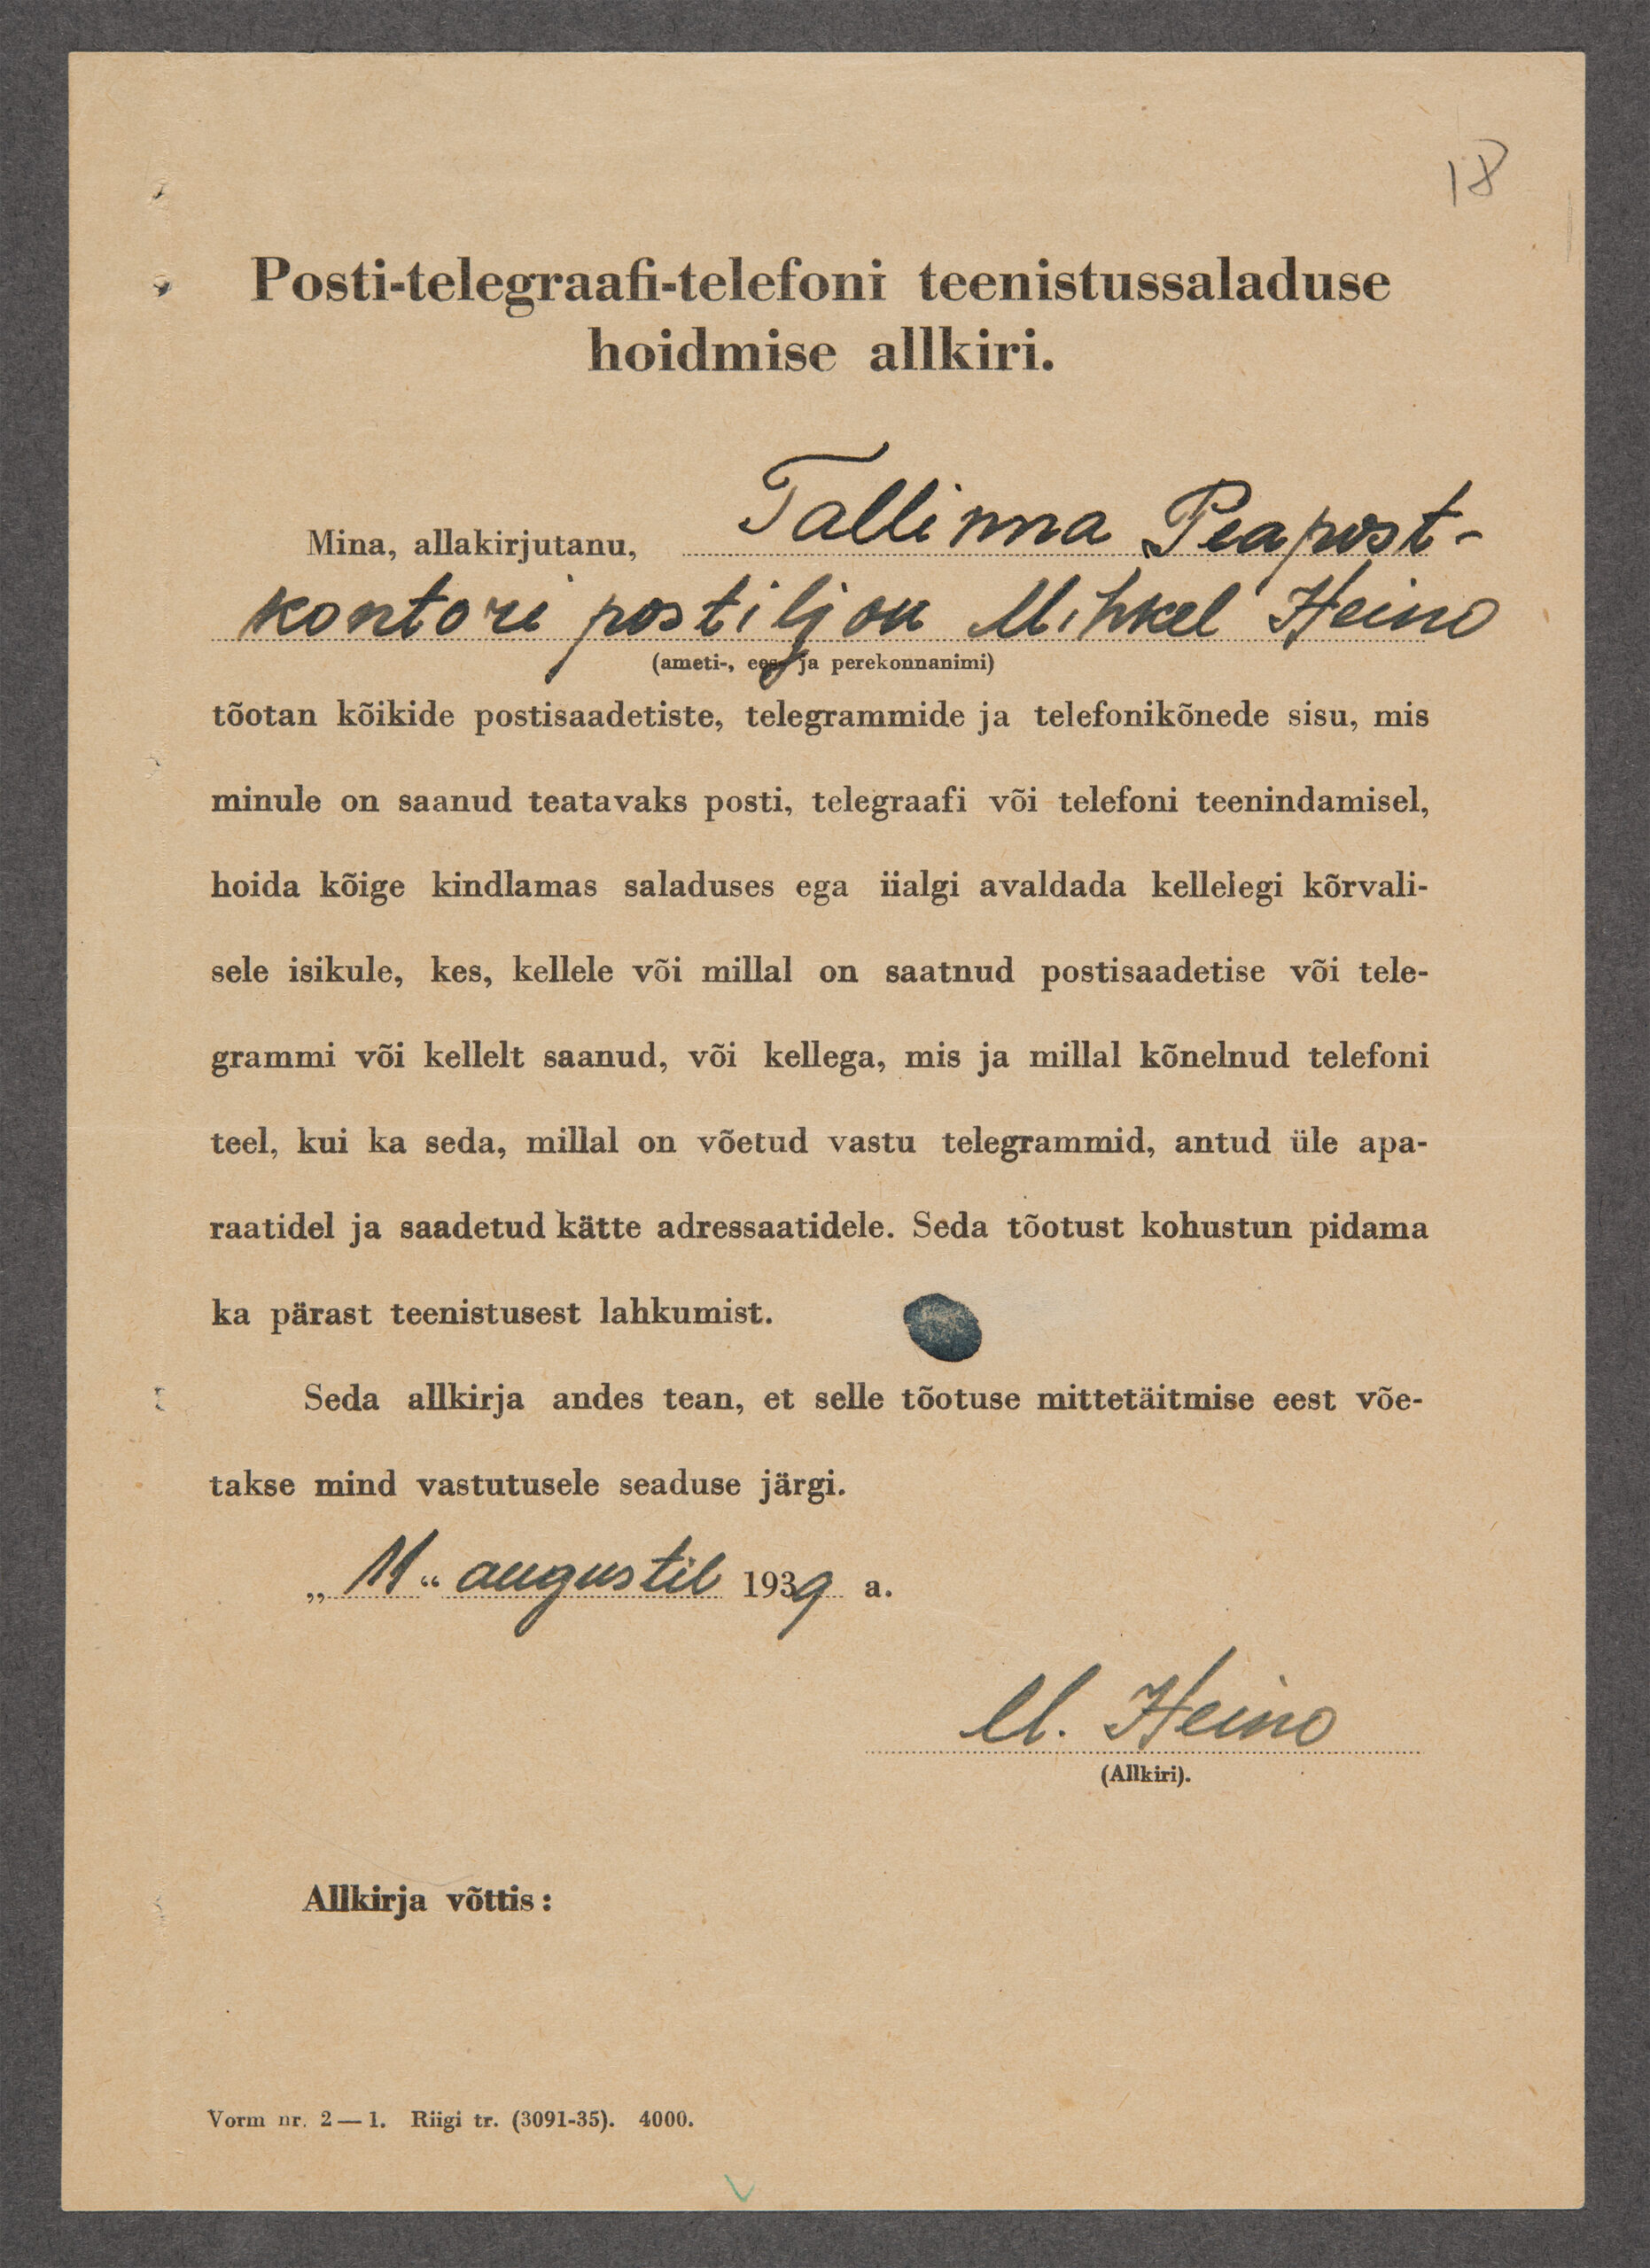 18
Posti-telegraafi-telefoni teenistussaladuse
hoidmise allkiri.
Mina, allakirjutanu, Tallinna Peapost-
kontori postiljon Mihkel Heino
(ameti-, ees- ja perekonnanimi)
tõotan kõikide postisaadetiste, telegrammide ja telefonikõnede sisu, mis
minule on saanud teatavaks posti, telegraafi või telefoni teenindamisel,
hoida kõige kindlamas saladuses ega iialgi avaldada kellelegi kõrvali-
sele isikule, kes, kellele või millal on saatnud postisaadetise või tele-
grammi või kellelt saanud, või kellega, mis ja millal kõnelnud telefoni
teel, kui ka seda, millal on võetud vastu telegrammid, antud üle apa-
raatidel ja saadetud kätte adressaatidele. Seda tõotust kohustun pidama
ka pärast teenistusest lahkumist.
Seda allkirja andes tean, et selle tõotuse mittetäitmise eest võe-
takse mind vastutusele seaduse järgi.
„11“ augustil 1939 a.
M. Heino
(Allkiri).
Allkirja võttis:
Vorm nr. 2—1. Riigi tr. (3091-35). 4000.